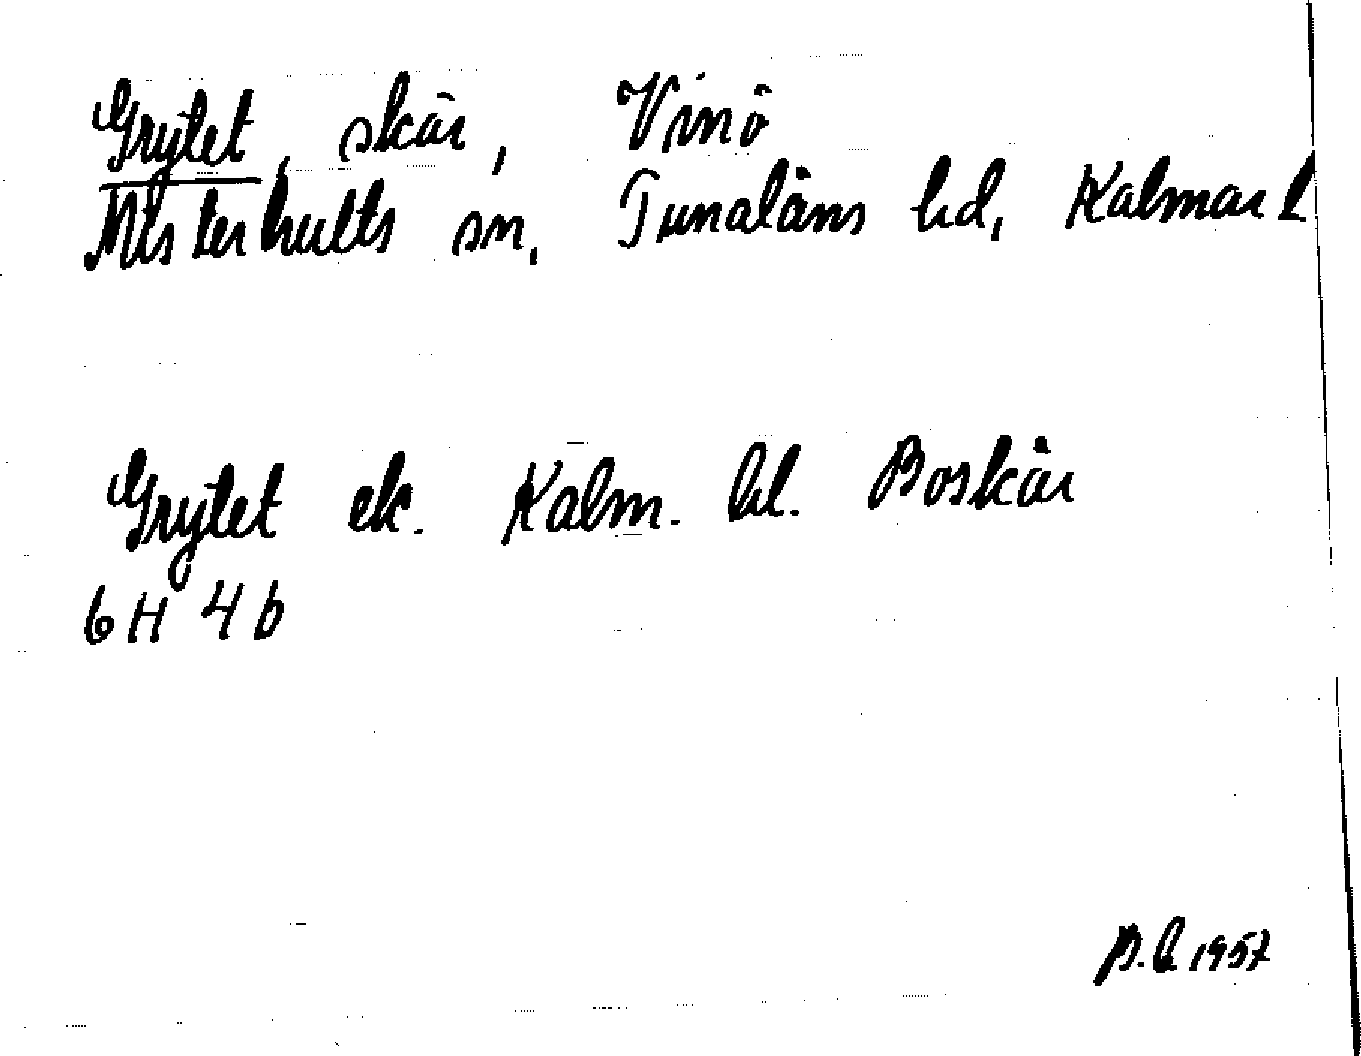 Grytet, skär, Vinö
Misterhults sn, Tunaläns hd, Kalmar l
Grytet ek. Kalm. bl. Boskär
6H 4b
B.E 1957